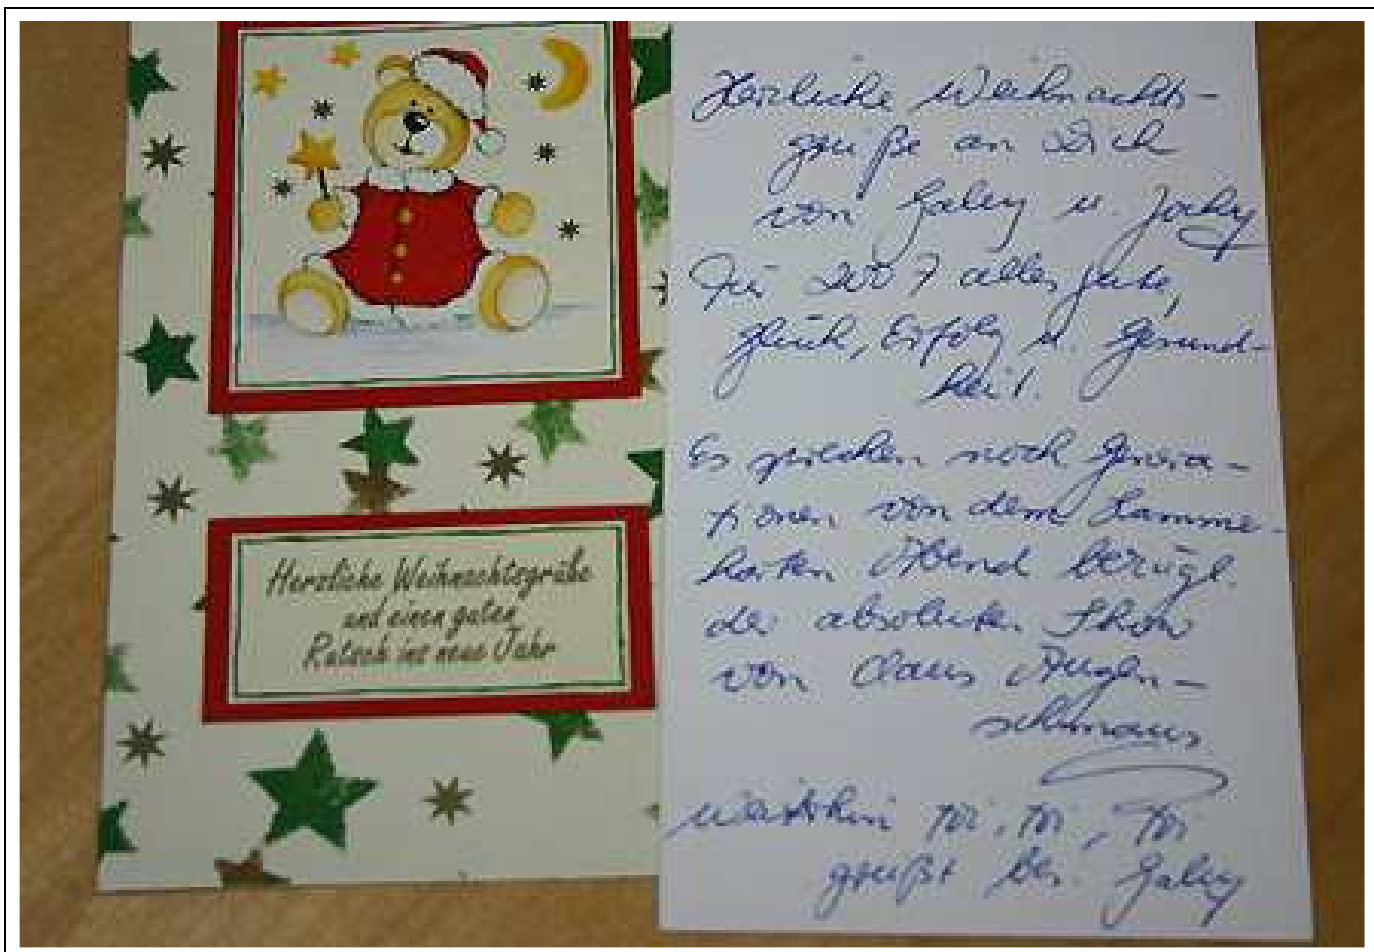 Herzliche Weihnachtsgrüße
und einen guten
Rutsch ins neue Jahr
Herzliche Weihnachts-
grüße an Dich
von Gaby u. Jocky
Für 2007 alles Gute,
Glück, Erfolg u. Gesund-
heit.
Es sprechen noch Genera-
tionen von dem
Abend bezügl.
der absoluten Show
von Claus Augen-
schmaus
weiterhin toi, toi, toi
grüßt Dei. Gaby